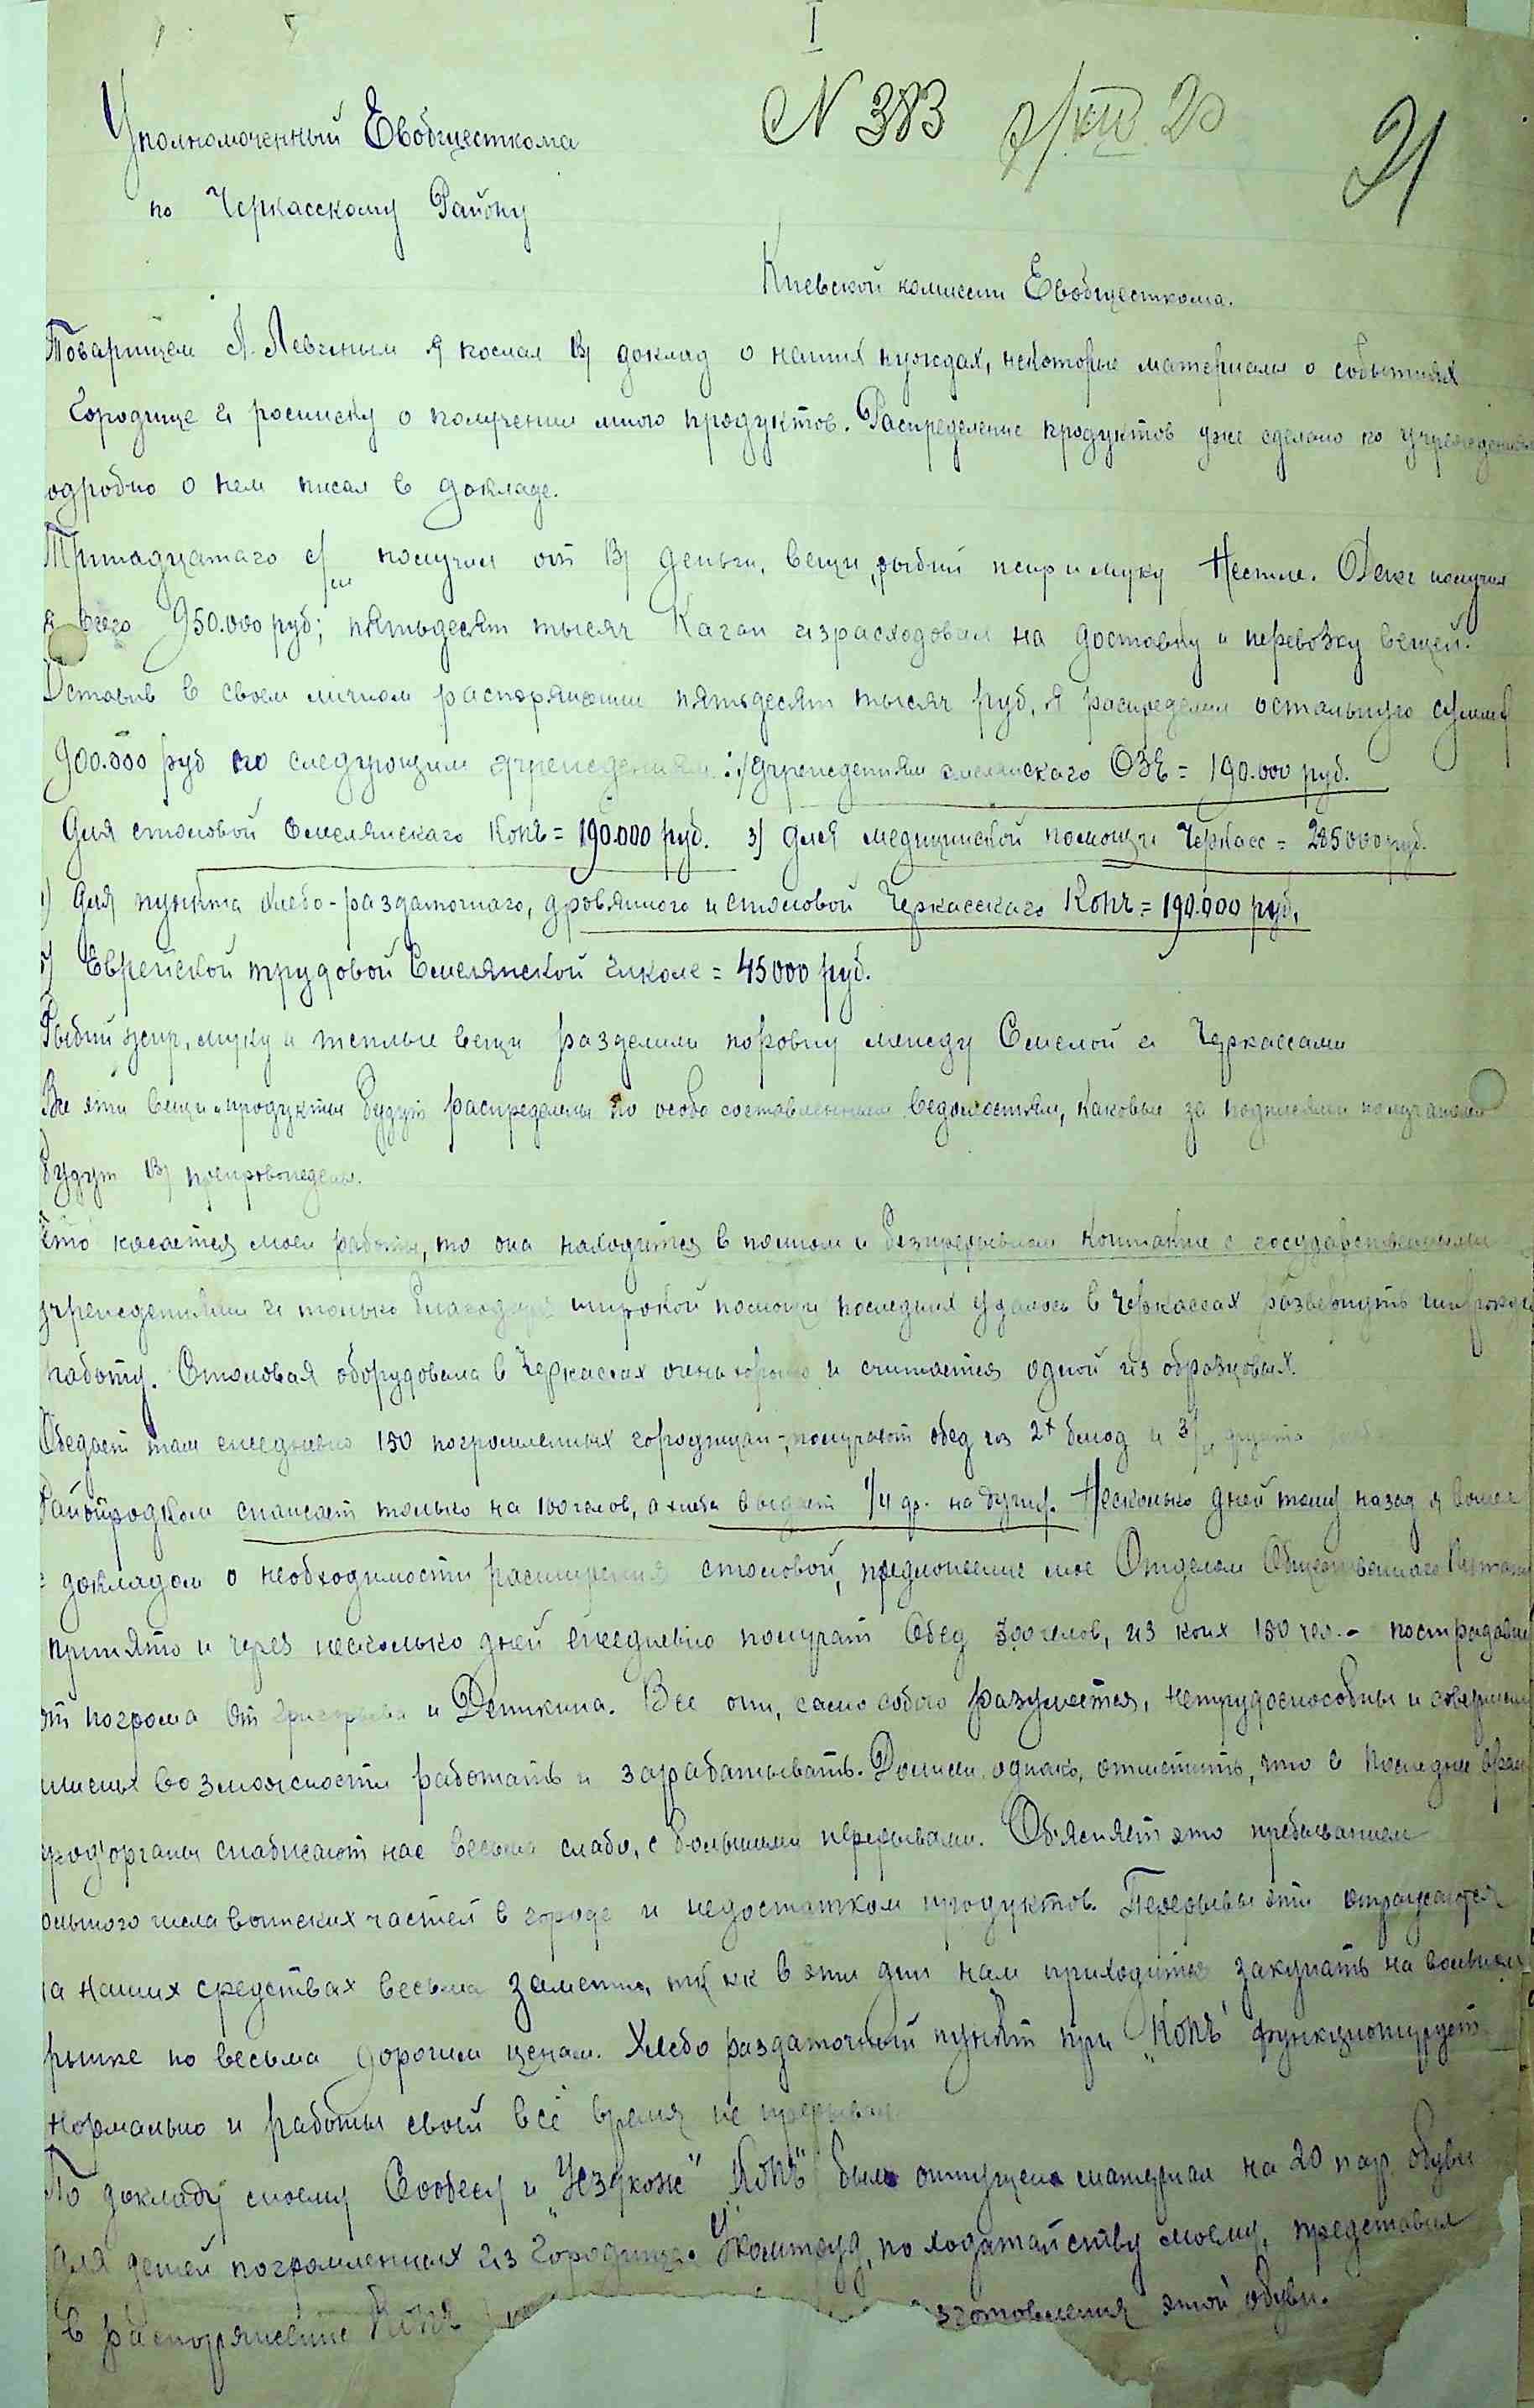 I
N 383
21
Уполномоченный Евобщесткома
по Черкасскому Району
Киевской комиссии Евобщесткома.
Товарищем Л. Левчиным я послал В/ доклад о наших нуждах, некоторые материалы о событиях
Городище и росписку о получении мною продуктов. Распределение продуктов уже сделано по учреждениям
одробно о нем писал в докладе.
Тринадцатаго с/м получил от В/ деньги, вещи, рыбий жир и муку Нестле. Денег получил
я всего 950.000 руб; пятьдесят тысяч Каган израсходовал на доставку и перевозку вещей.
Оставив в своем личном распоряжении пятьдесят тысяч руб, я распределил остальную сумму
900.000 руб по следующим учреждениям: 1) учреждениям смелянскаго ОЗЕ = 190.000 руб.
Для столовой Смелянскаго Копъ = 190.000 руб. 3) для медицинской помощи Черкасс = 285000 руб.
) Для пункта хлебо-раздаточнаго, дровянного и столовой Черкасскаго Копъ = 190.000 руб,
5) Еврейской трудовой Смелянской школе = 45000 руб.
Рыбий жир, муку и теплые вещи разделили поровну между Смелой и Черкассами
Все эти вещи и продукты будут распределены по особо составленным ведомостям, каковые за подписями получателей
будут В/ препровождены.
Что касается моей работы, то она находится в полном и безпрерывном контакте с государственными
учреждениями и только благодаря широкой помощи последних удалось в Черкассах развернуть широкую
работу. Столовая оборудована в Черкассах очень хорошо и считается одной из образцовых.
Обедает там ежедневно 150 погромленных городищан, - получают обед из 2х блюд и 3/4 фунта
Райопродком снабжает только на 100 челов, а хлеба выдает 1/4 ф. на душу. Несколько дней тому назад я вошел
с докладом о необходимости расширения столовой, предложение мое Отделом Общественнаго Питания
принято и через несколько дней ежедневно получат обед 300 челов, из коих 150 чел. - пострадавшие
от погрома от Григорьева и Деникина. Все они, само собою разумеется, нетрудоспособны и совершенно
лишены возможности работать и зарабатывать. Должен, однако, отметить, что в последнее время
продорганы снабжают нас весьма слабо, с большими перерывами. Об'ясняет это пребыванием
ольшого числа воинских частей в городе и недостатком продуктов. Перерывы эти отражаются
на наших средствах весьма заметно, так как в эти дни нам приходится закупать на вольном
рынке по весьма дорогим ценам. Хлебо раздаточный пункт при „Копъ" функционирует
нормально и работы своей всё время не прерывал
По докладу моему Собесу и „Уездкоже" „Копъ" был отпущен материал на 20 пар обуви
для детей погромленных из Городища. Укомтруд, по ходатайству моему, представил
в распоряжение Копъ
зготовления этой обуви.